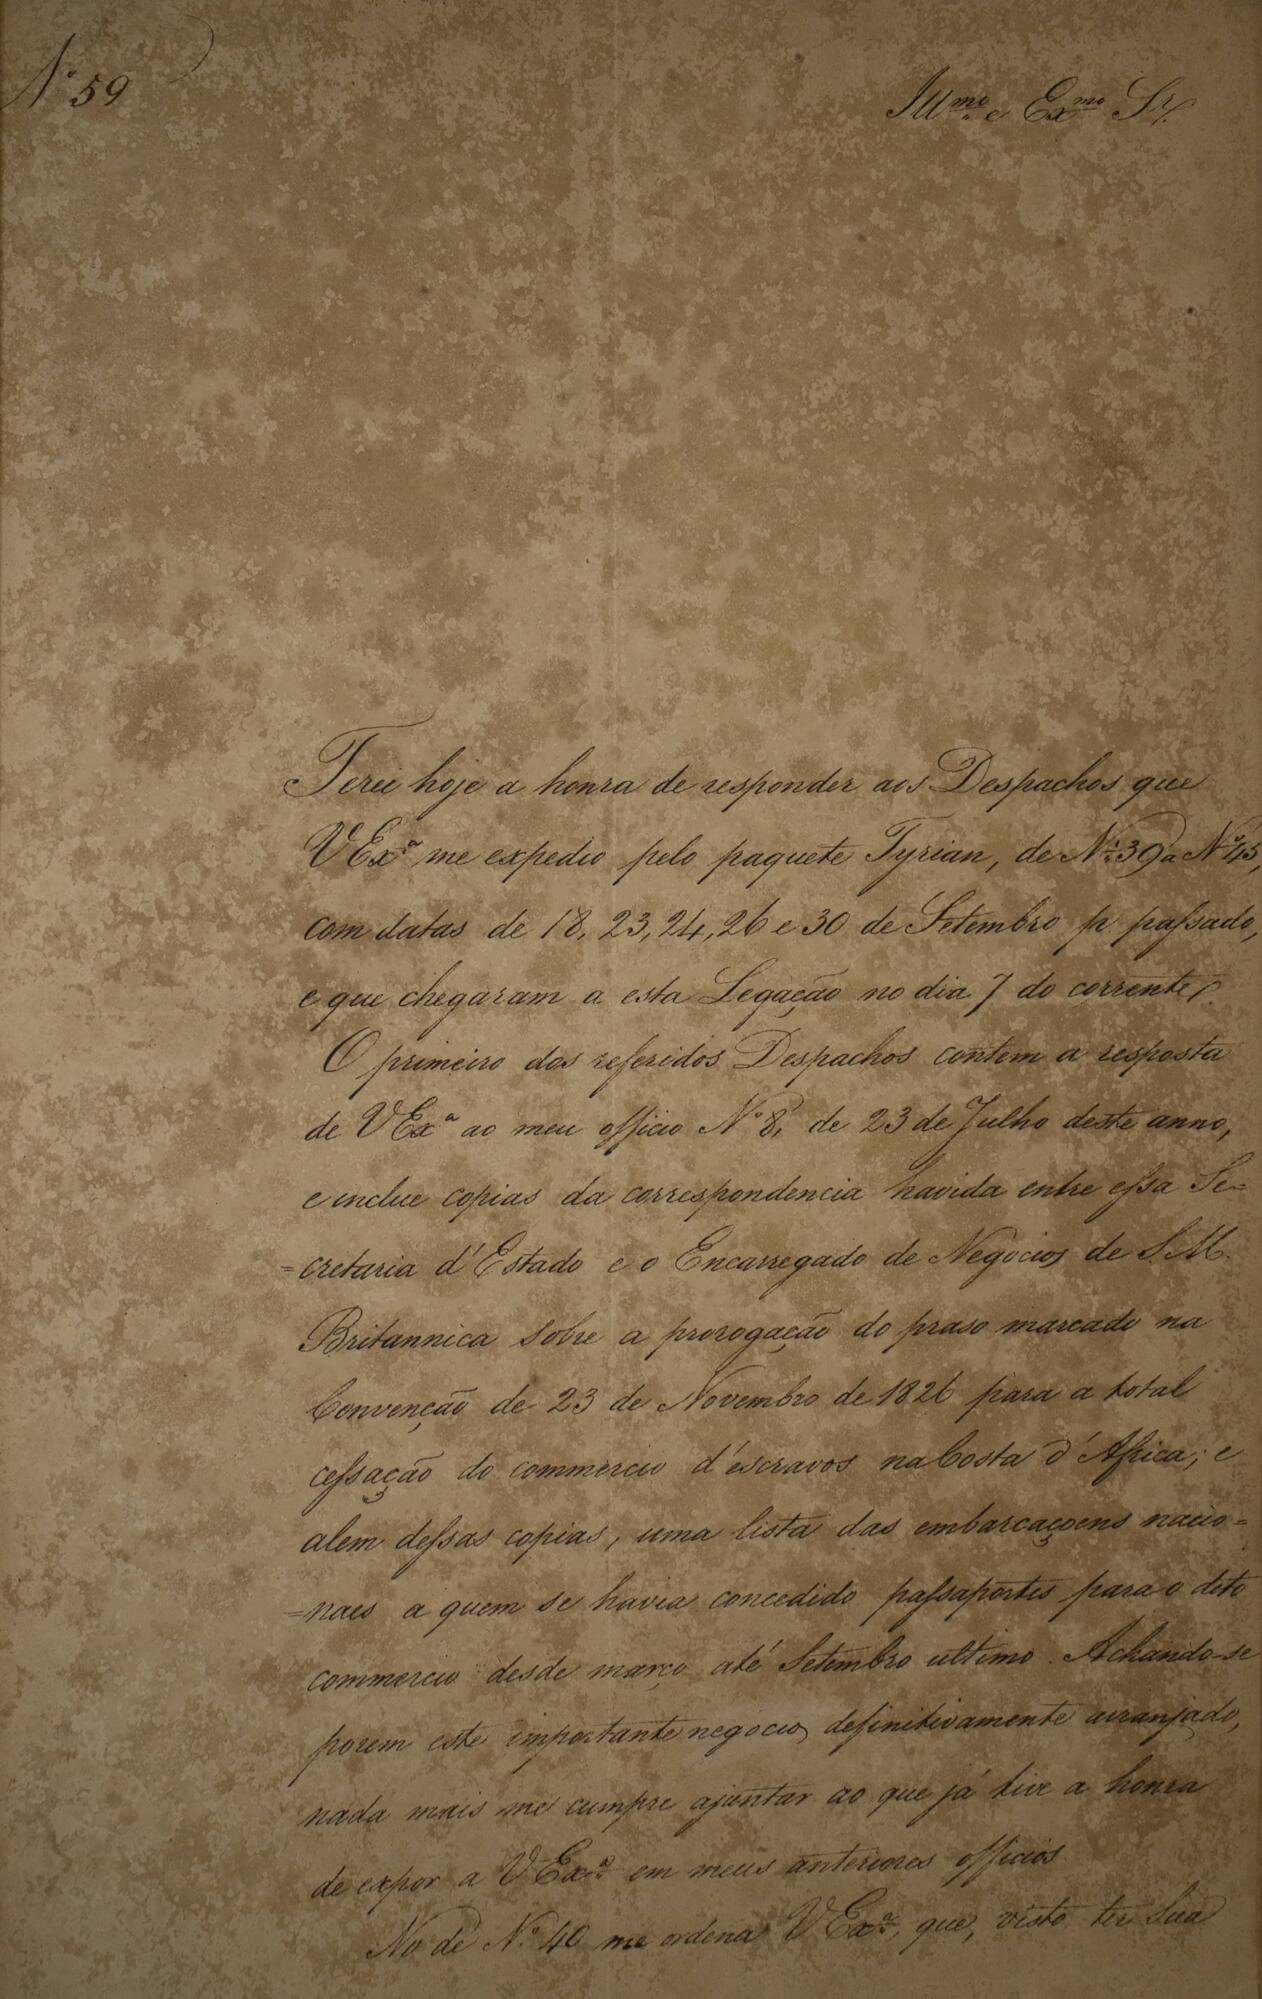 Nº 59
Illmo e Exmo Sr.
Terei hoje a honra de responder aos Despachos que
VExª me expedio pelo paquete Tyrian, de Nº 39 a Nº 45,
com datas de 18, 23, 24, 26 e 30 de Setembro p. passado,
e que chegaram a esta Legação no dia 7 do corrente.
O primeiro dos referidos Despachos contem a resposta
de VExª ao meu officio Nº 8, de 23 de Julho deste anno,
e inclue copias da correspondencia havida entre essa Se=
=cretaria d'Estado e o Encarregado de Negocios de S.M.
Britannica sobre a prorogação do praso marcado na
Convenção de 23 de Novembro de 1826 para a total
cessação do commercio d'escravos na Costa d'Africa; e
alem dessas copias, uma lista das embarcaçoens nacio=
=naes a quem se havia concedido passaportes para o dito
commercio desde março até Setembro ultimo. Achando-se
porem este importante negocio definitivamente arranjado,
nada mais me cumpre ajuntar ao que já tive a honra
de expor a VExª em meus anteriores officios.
No de Nº 40 me ordena VExª, que, visto ter Sua